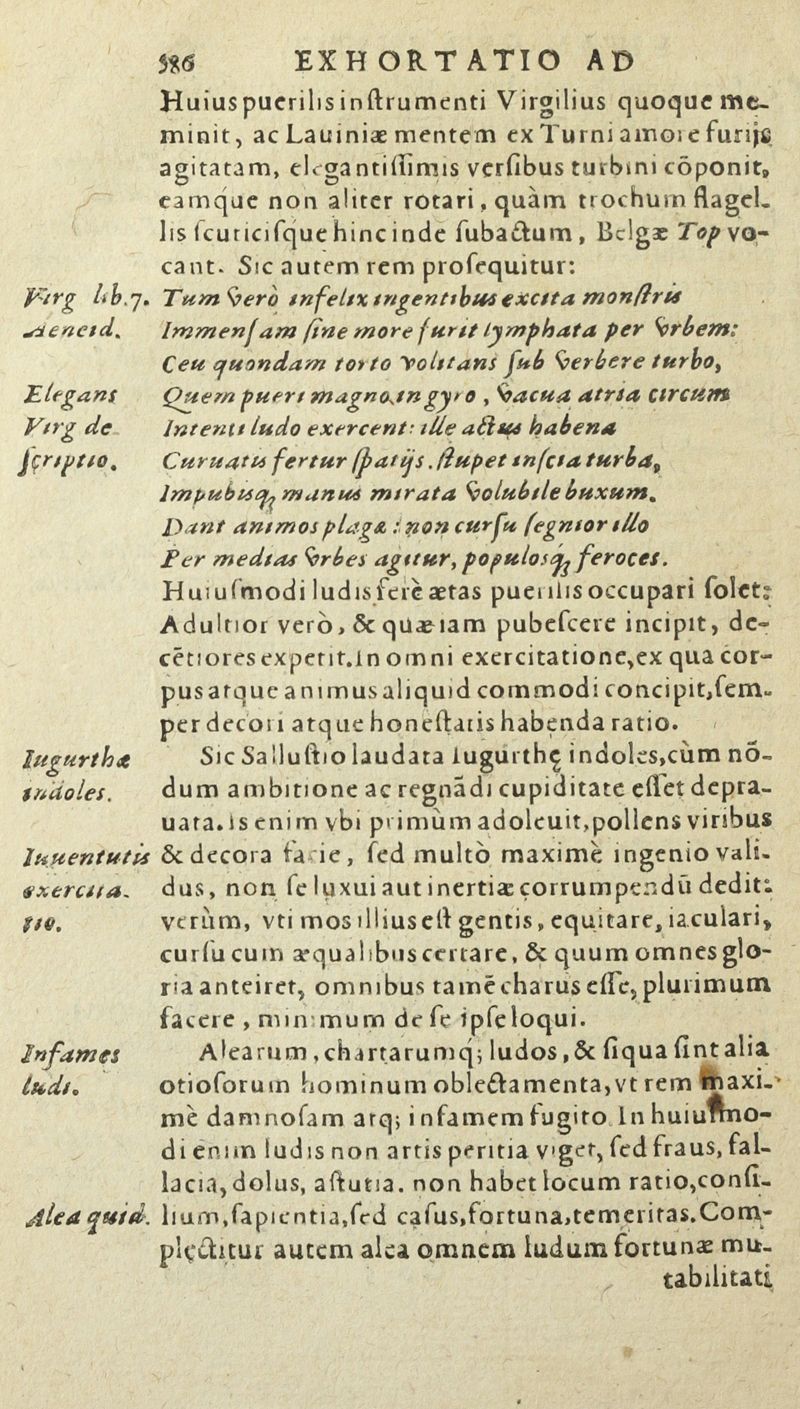 586 EXHORTATIO AD
Huius puerilis inſtrumenti Virgilius quoque me-
minit, ac Lauiniæ mentem ex Turni amore furijs
agitatam, elegantiſſimis verſibus turbini cōponit,
eamque non aliter rotari, quàm trochum flagel-
lis ſcuticiſque hinc inde ſubactum, Belgæ Top vo-
cant. Sic autem rem proſequitur:
Virg lib.7. Tum verò infelix ingentibus excita monſtris
Aeneid. Immenſam ſine more furit lymphata per vrbem:
Ceu quondam torto volitans ſub verbere turbo,
Elegans Quem pueri magno in gyro, vacua atria circum
Virg de Intenti ludo exercent: ille actus habena
ſcriptio. Curuatis fertur ſpatijs. ſtupet inſcia turba,
Impubisq; manus mirata volubile buxum.
Dant animos plagæ: non curſu ſegnior illo
Per medias vrbes agitur, populosq; feroces.
Huiuſmodi ludis ferè ætas puerilis occupari ſolet:
Adultior verò, & quæ iam pubeſcere incipit, de-
cētiores expetit. In omni exercitatione, ex qua cor-
pus atque animus aliquid commodi concipit, ſem-
per decori atque honeſtatis habenda ratio.
Iugurthæ Sic Salluſtio laudata Iugurthę indoles, cùm nō-
indoles. dum ambitione ac regnādi cupiditate eſſet depra-
uata. is enim vbi primùm adoleuit, pollens viribus
Iuuentutis & decora facie, ſed multò maximè ingenio vali-
exercita- dus, non ſe luxui aut inertiæ corrumpendū dedit:
tio. verùm, vti mos illius eſt gentis, equitare, iaculari,
curſu cum æqualibus certare, & quum omnes glo-
ria anteiret, omnibus tamē charus eſſe, plurimum
facere, minimum de ſe ipſe loqui.
Infames Alearum, chartarumq; ludos, & ſiqua ſint alia
ludi. otioſorum hominum oblectamenta, vt rem maxi-
mè damnoſam atq; infamem fugito. In huiuſmo-
di enim ludis non artis peritia viget, ſed fraus, fal-
lacia, dolus, aſtutia. non habet locum ratio, conſi-
Alea quid. lium, ſapientia, ſed caſus, fortuna, temeritas. Com-
plęctitur autem alea omnem ludum fortunæ mu-
tabilitati